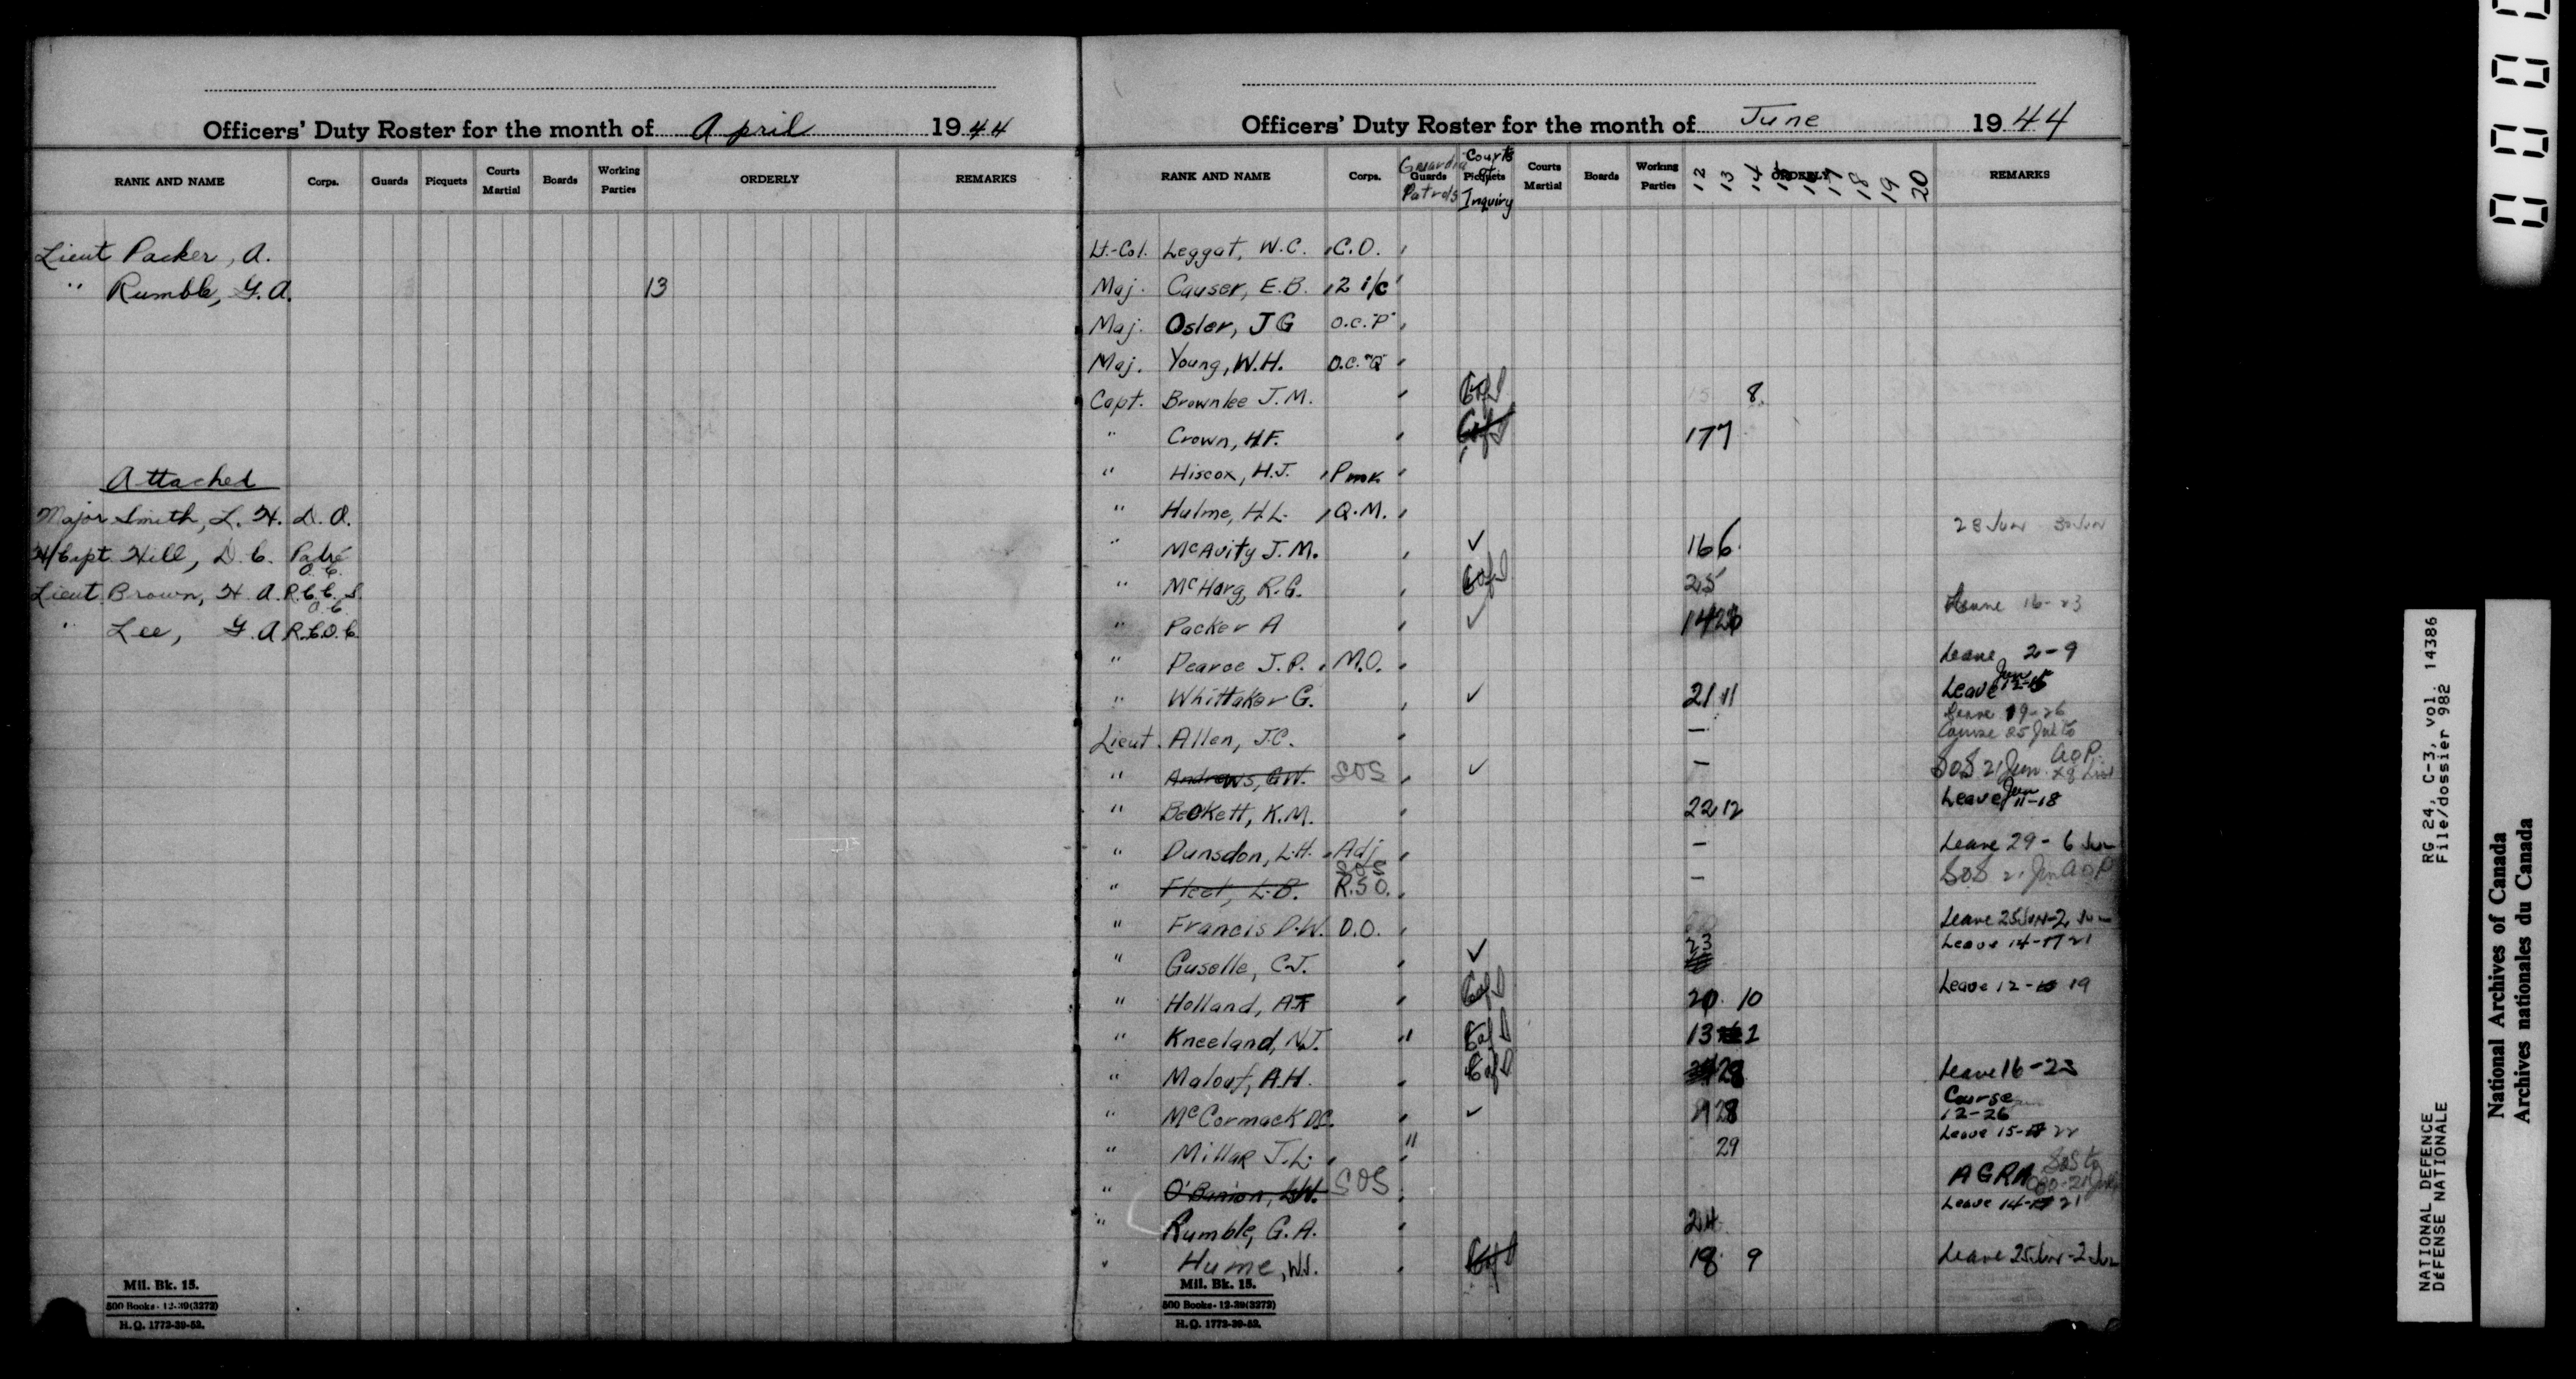 Officers' Duty Roster for the month of April 1944
RANK AND NAME Corps. Guards Picquets Courts Martial Boards Working Parties ORDERLY REMARKS
Lieut Packer, A.
" Rumble, G. A. 13
Attached
Major Smith, L. H. D. O.
H/Capt Hill, D. C. Padre
Lieut Brown, H. A. R.C.C.S. O.C.
" Lee, G. A R.C.O.C. O.C.
Mil. Bk. 15.
500 Books - 12-39(3272)
H.Q. 1772-39-52.
Officers' Duty Roster for the month of June 1944
RANK AND NAME Corps. Guards Picquets Courts Martial Boards Working Parties ORDERLY REMARKS
Patrols Courts of Inquiry
12 13 14 15 16 17 18 19 20
Lt.-Col. Leggat, W.C. C.O.
Maj. Causer, E.B. 2 i/c
Maj. Osler, J G O.C. "P"
Maj. Young, W.H. O.C. "Q"
Capt. Brownlee J.M. 8
" Crown, H.F. 17 7
" Hiscox, H.J. Pmk
" Hulme, H.L. Q.M.
28 Jun 30 Jun
" McAvity J.M. ✓ 16 6
" McHarg, R.G. 25
Leave 16-23
" Packer A ✓ 14
" Pearce J.P. M.O. Leave 2-9
" Whittaker G. ✓ 21 11 Leave Jun 12-15
Leave 19-26
Lieut. Allen, J.C. — Course 25 Jul to
" Andrews, G.W. SOS ✓ — SOS 21 Jun AOP
" Beckett, K.M. 22 12 Leave Jun 11-18
" Dunsdon, L.H. Adj — Leave 29 - 6 Jun
" Fleet, L.B. SOS R.S.O. — SOS 21 Jun AOP
" Francis D.W. O.O. Leave 25 Jun-2 Jun
Leave 14-17 21
" Guselle, C.J. ✓ 23
Leave 12- 19
" Holland, A.F 20 10
" Kneeland, N.J. " 13 2
" Malouf, A.H. 28 Leave 16-23
Course
" McCormack D.C. ✓ 28 12-26
Leave 15- 22
" Millar J.L. " 29
" O'Banion, L.W. SOS AGRA SOS to
Leave 14- 21
" Rumble, G.A. 24
" Hume, W.J. 18 9 Leave 25 Jun-2 Jun
Mil. Bk. 15.
500 Books - 12-39(3272)
H.Q. 1772-39-52.
RG 24, C-3, vol. 14386
File/dossier 982
NATIONAL DEFENCE
DÉFENSE NATIONALE
National Archives of Canada
Archives nationales du Canada